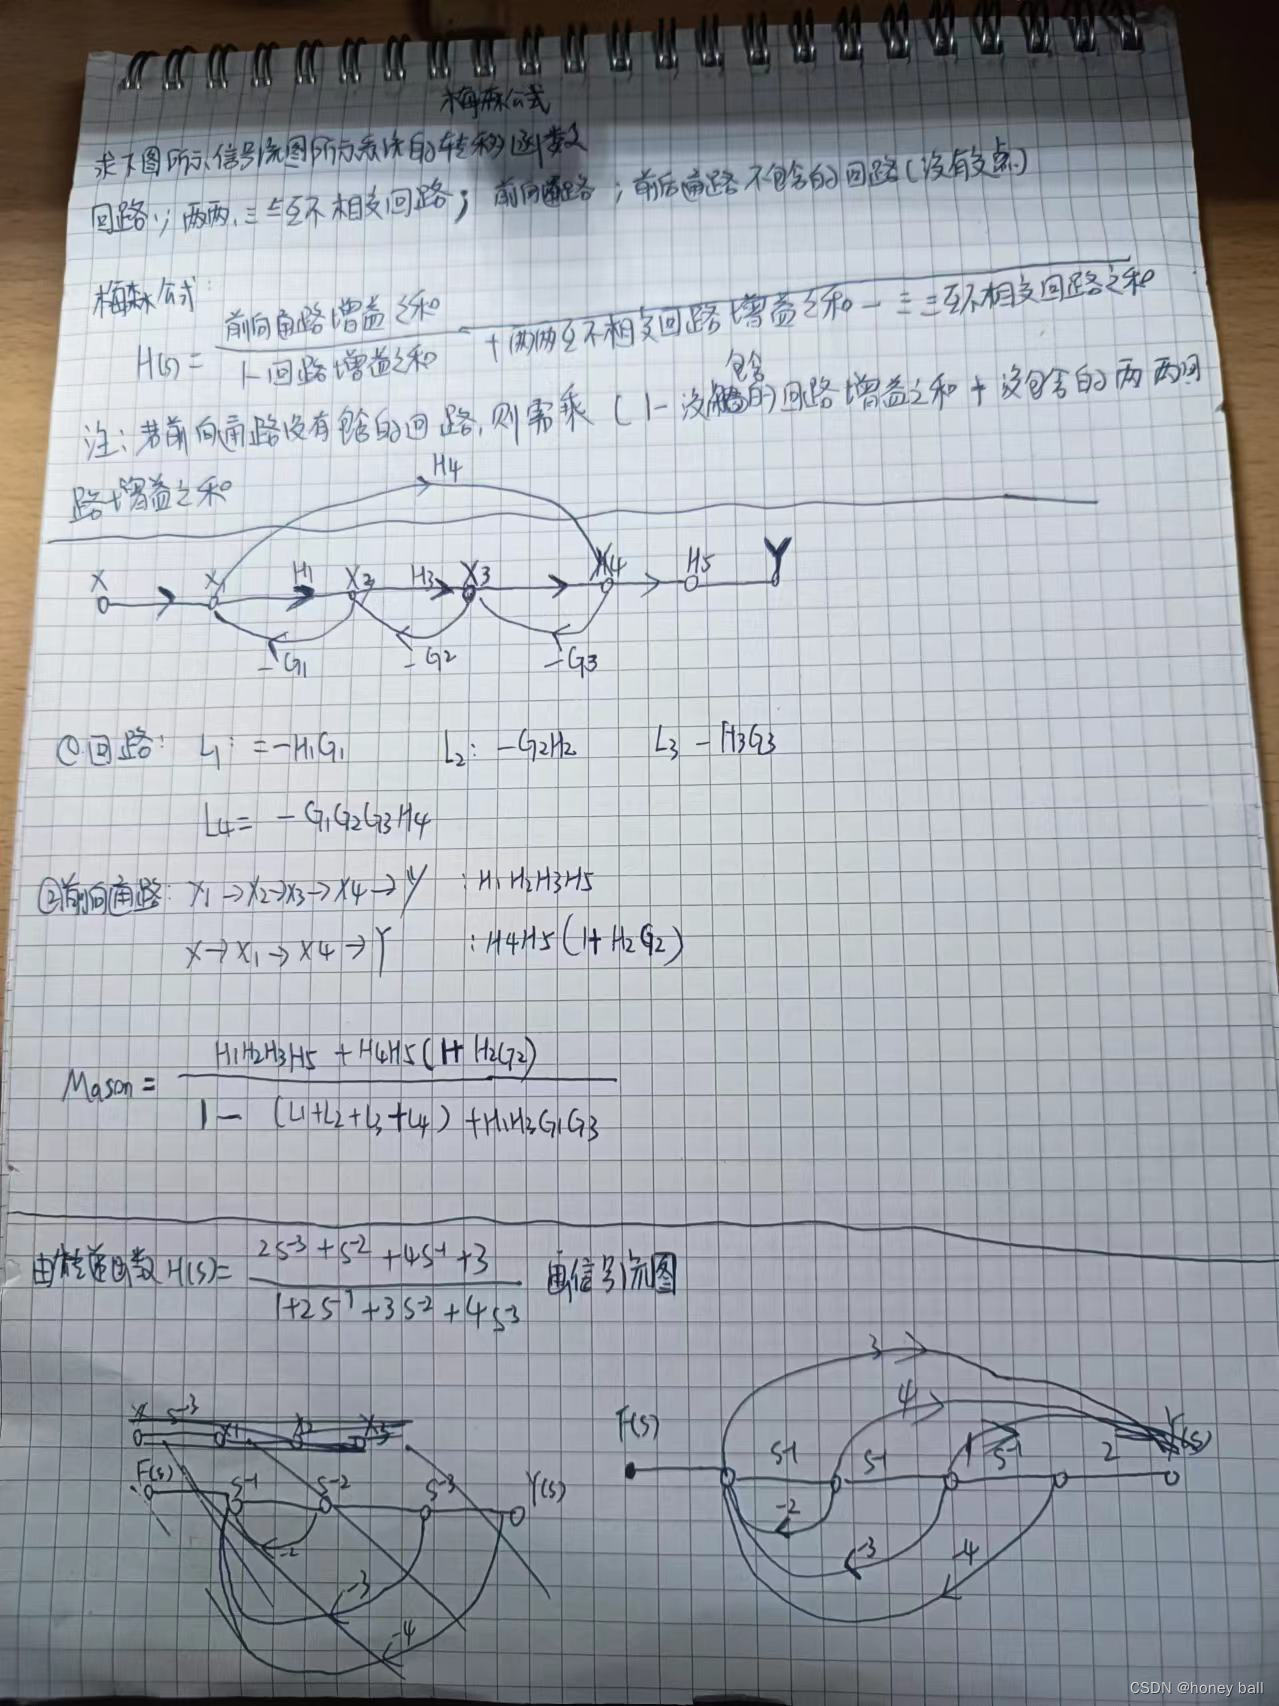 梅森公式
求下图所示信号流图所示系统的转移函数
回路;两两、三三互不相交回路;前向通路;前后通路不包含的回路(没有交点)
梅森公式:
H(s)= 前向通路增益之和
1-回路增益之和 + 两两互不相交回路增益之和 - 三三互不相交回路之和
注:若前向通路没有包含的回路,则需乘(1-没包含的回路增益之和+没包含的两两回
路增益之和
H4
X X1 H1 X2 H3 X3 X4 H5 Y
-G1 -G2 -G3
①回路: L1: =-H1G1 L2: -G2H2 L3 -H3G3
L4= -G1G2G3H4
②前向通路: X1→X2→X3→X4→Y : H1H2H3H5
X→X1→X4→Y : H4H5(1+H2G2)
Mason= H1H2H3H5 + H4H5(1+H2G2)
1- (L1+L2+L3+L4) +H1H3G1G3
由转递函数H(s)= 2S-3+S-2+4S-1+3 画信号流图
1+2S-1+3S-2+4S-3
X S-3 X1 X2 X3
F(s) S-1 S-2 S-3 Y(s)
-2
-3
-4
3
4
F(s) S-1 S-1 1 S-1 2 Y(s)
-2
-3 -4
CSDN @honey ball